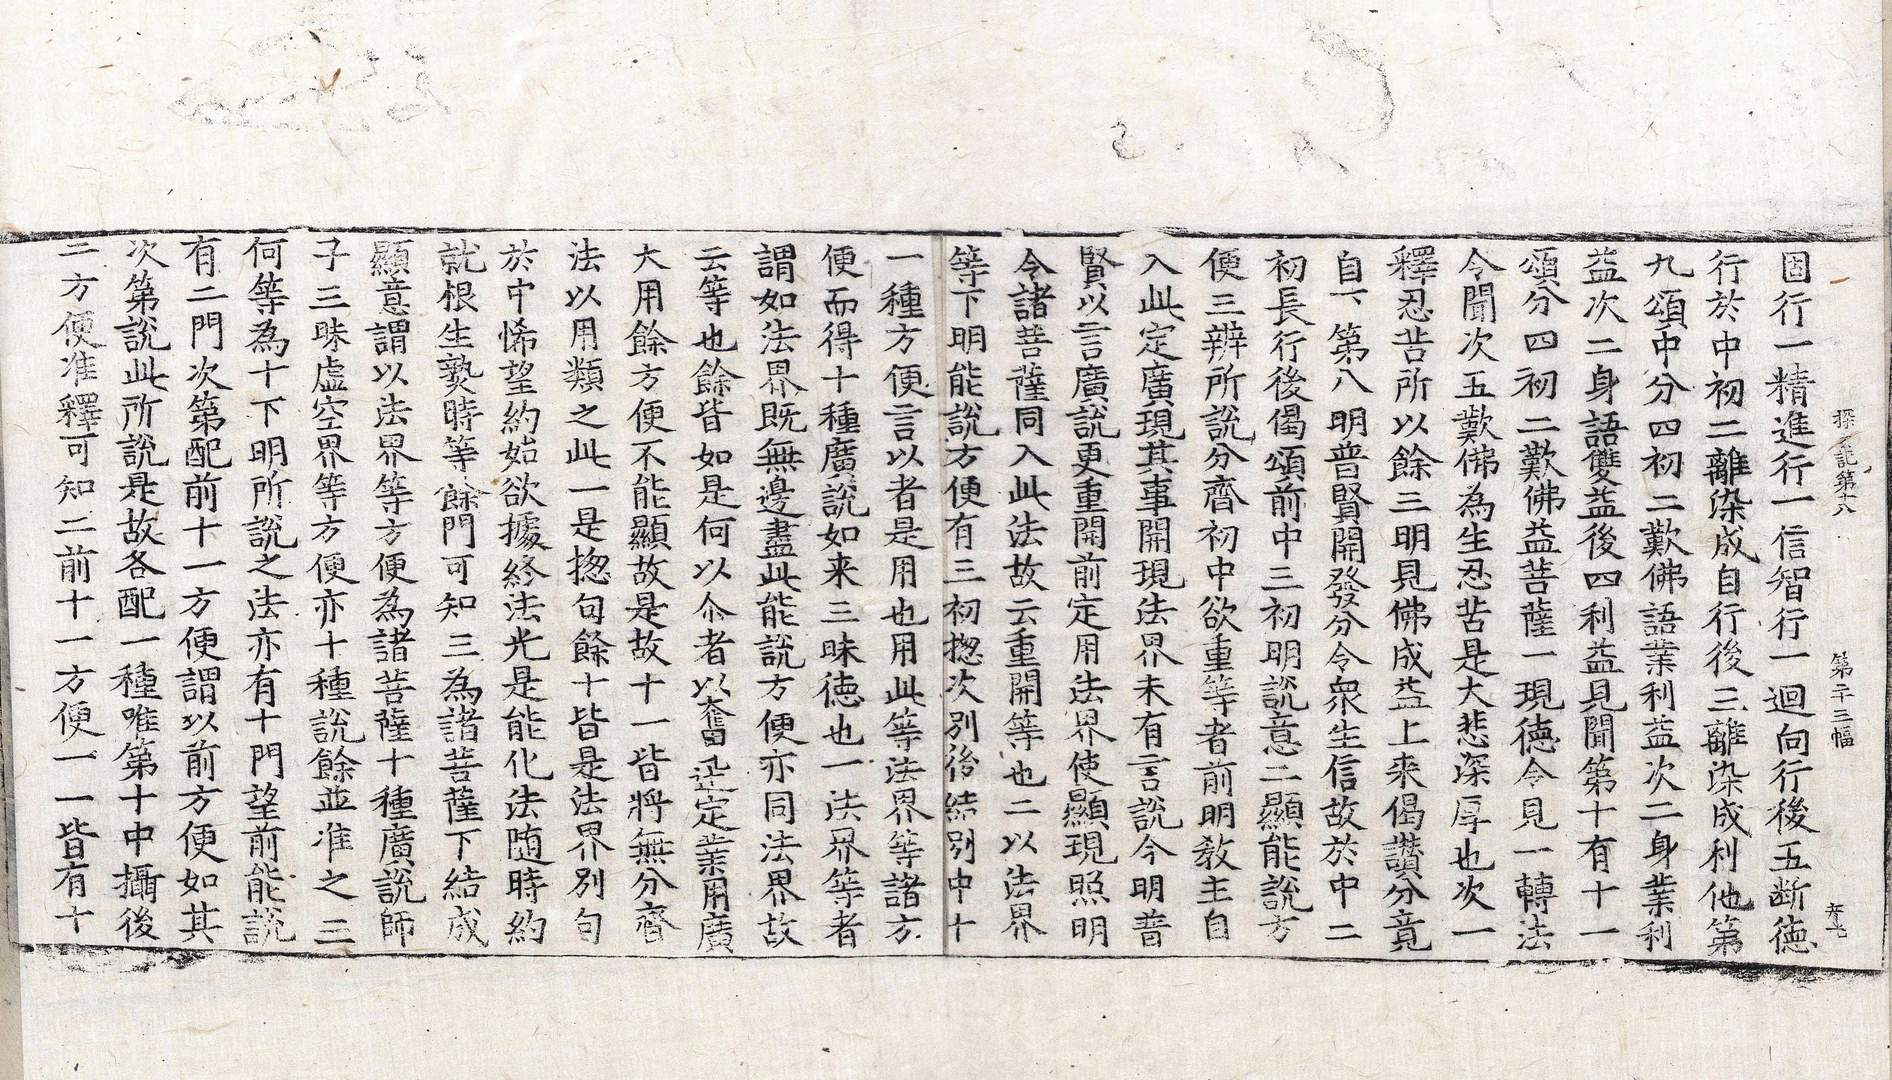 探記第十八 第二十三幅
固行一精進行一信智行一迴向行後五断徳
行於中初二離染成自行後三離染成利他第
九頌中分四初二歎佛語業利益次二身業利
益次二身語雙益後四利益見聞第十有十一
頌分四初二歎佛益菩薩一現徳令見一轉法
令聞次五歎佛為生忍苦是大悲深厚也次一
釋忍苦所以餘三明見佛成益上来偈讚分竟
自下第八明普賢開發分令衆生信故於中二
初長行後偈頌前中三初明說意二顯能說方
便三辨所說分齊初中欲重等者前明教主自
入此定廣現其事開現法界未有言說今明普
賢以言廣說更重開前定用法界使顯現照明
令諸菩薩同入此法故云重開等也二以法界
等下明能說方便有三初揔次別後結別中十
一種方便言以者是用也用此等法界等諸方
便而得十種廣說如来三昧徳也一法界等者
謂如法界既無邊盡此能說方便亦同法界故
云等也餘皆如是何以尒者以奮迅定業用廣
大用餘方便不能顯故是故十一皆將無分齊
法以用類之此一是揔句餘十皆是法界別句
於中悕望約始欲據終法光是能化法随時約
就根生熟時等餘門可知三為諸菩薩下結成
顯意謂以法界等方便為諸菩薩十種廣說師
子三昧虛空界等方便亦十種說餘並准之三
何等為十下明所說之法亦有十門望前能說
有二門次第配前十一方便謂以前方便如其
次第說此所說是故各配一種唯第十中攝後
二方便准釋可知二前十一方便一一皆有十